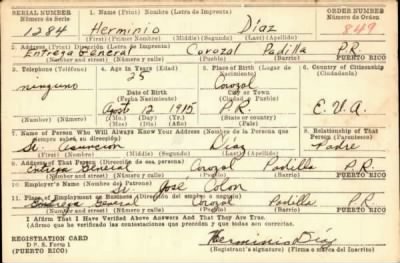 SERIAL NUMBER 1. Name (Print) Nombre (Letra de Imprenta) ORDER NUMBER
Número de Serie Número de Orden
1284 Herminio Díaz 849
(First) (Primer Nombre) (Middle) (Segundo) (Last) (Apellido)
2. Address (Print) Dirección (Letra de Imprenta)
Entrega General Corozal Padilla P.R.
(Number) Número (Street) (Calle) (Town) (Pueblo) (Barrio) PUERTO RICO
3. Telephone (Teléfono) 4. Age in Years (Edad) 5. Place of Birth (Lugar de Nacimiento) 6. Country of Citizenship (Ciudadanía)
ninguno 25 Corozal
Date of Birth (Town or City)
(Fecha Nacimiento) (Ciudad o Pueblo)
Agosto 12 1915 P.R. E.U.A.
(Mo.) (Day) (Yr.) (State or country)
(Mes) (Día) (Año) (Estado o país)
7. Name of Person Who Will Always Know Your Address (Nombre de la Persona que siempre sabrá su dirección) 8. Relationship of That Person (Parentesco)
Sr. Asunción Díaz Padre
(First) (Primero) (Middle) (Segundo) (Last) (Apellido)
9. Address of That Person (Dirección de esa persona)
Entrega General Corozal Padilla P.R.
(Number) Número (Street) (Calle) (Town) (Pueblo) (Barrio) PUERTO RICO
10. Employer's Name (Nombre del Patrono)
Sr. José Colón
11. Place of Employment or Business (Dirección del empleo o negocio)
Entrega General Corozal Padilla P.R.
(Number) (Número) (Street) (Calle) (Town) (Pueblo) (Barrio) PUERTO RICO
I Affirm That I Have Verified Above Answers And That They Are True.
(Afirmo que he verificado las contestaciones que preceden y que todas son correctas.)
REGISTRATION CARD Herminio Díaz
D. S. S. Form 1 (Registrant's signature) (Firma o marca del Inscrito)